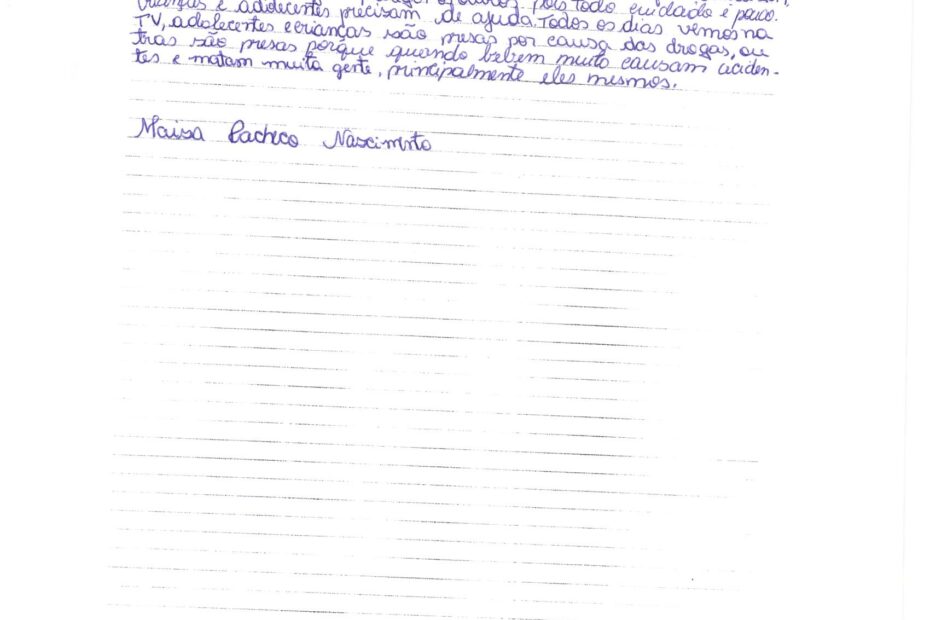 pois todo cuidado é pouco.
crianças e adolecentes precisam de ajuda. Todos os dias vemos na
TV, adolecentes e crianças são presas por causa das drogas, ou
tras são presas porque quando bebem muito causam aciden-
tes e matam muita gente, principalmente eles mesmos.
Maisa Pacheco Nascimento